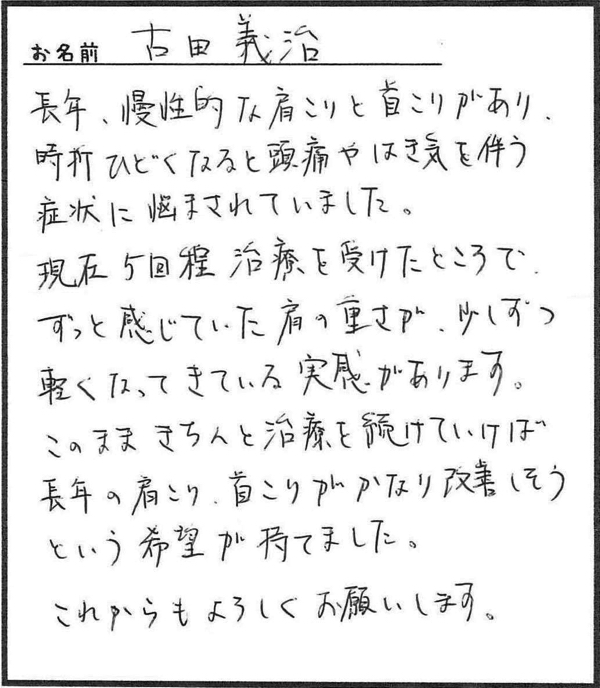 お名前 古田義治
長年、慢性的な肩こりと首こりがあり、
時折ひどくなると頭痛やはき気を伴う
症状に悩まされていました。
現在5回程治療を受けたところで、
ずっと感じていた肩の重さが、少しずつ
軽くなってきている実感があります。
このままきちんと治療を続けていけば
長年の肩こり、首こりがかなり改善しそう
という希望が持てました。
これからもよろしくお願いします。